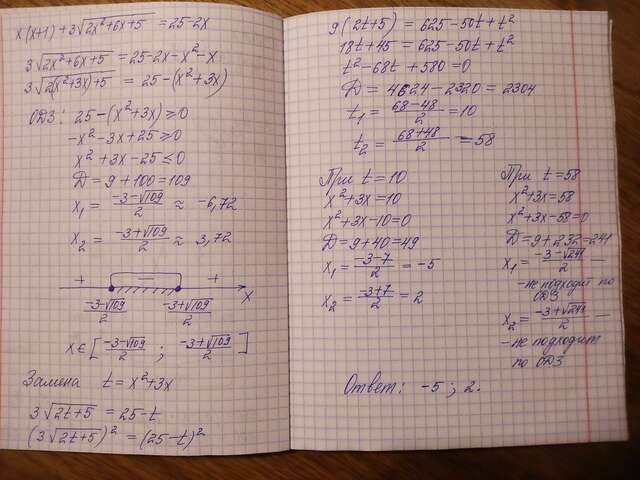 x(x+1)+3√(2x²+6x+5) = 25-2x
3√(2x²+6x+5) = 25-2x-x²-x
3√(2(x²+3x)+5) = 25-(x²+3x)
ОДЗ: 25-(x²+3x)≥0
-x²-3x+25≥0
x²+3x-25≤0
D=9+100=109
x₁ = (-3-√109)/2 ≈ -6,72
x₂ = (-3+√109)/2 ≈ 3,72
+ − +
(-3-√109)/2 (-3+√109)/2 x
x∈[(-3-√109)/2 ; (-3+√109)/2]
Замена t=x²+3x
3√(2t+5) = 25-t
(3√(2t+5))² = (25-t)²
9(2t+5) = 625-50t+t²
18t+45=625-50t+t²
t²-68t+580=0
D=4624-2320=2304
t₁=(68-48)/2=10
t₂=(68+48)/2=58
При t=10
x²+3x=10
x²+3x-10=0
D=9+40=49
x₁=(-3-7)/2=-5
x₂=(-3+7)/2=2
При t=58
x²+3x=58
x²+3x-58=0
D=9+232=241
x₁=(-3-√241)/2 —
-не подходит по
ОДЗ
x₂=(-3+√241)/2 —
-не подходит
по ОДЗ
Ответ: -5; 2.